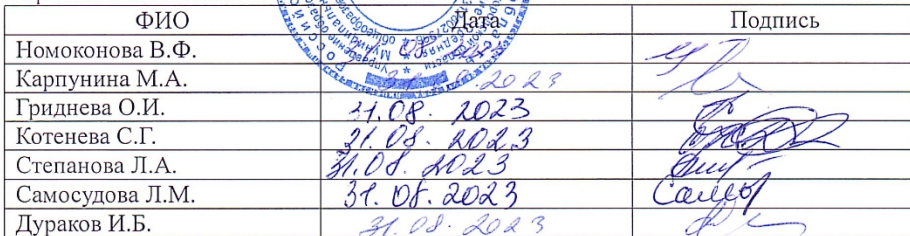 ФИО Дата Подпись
Номоконова В.Ф.
Карпунина М.А. 2023
Гриднева О.И. 31.08. 2023
Котенева С.Г. 31.08. 2023
Степанова Л.А. 31.08. 2023
Самосудова Л.М. 31.08. 2023
Дураков И.Б. 31.08. 2023